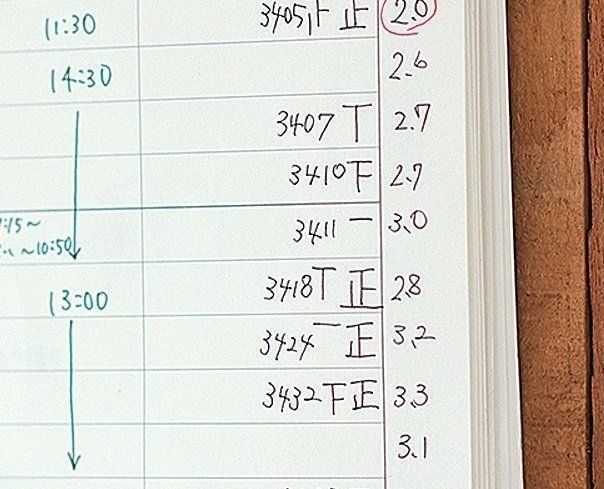 11:30 3405 下 正 2.0
14:30 2.6
3407 丅 2.7
3410 下 2.7
3411 一 3.0
:15～
～10:50
13:00 3418 丅 正 2.8
3424 一 正 3.2
3432 下 正 3.3
3.1